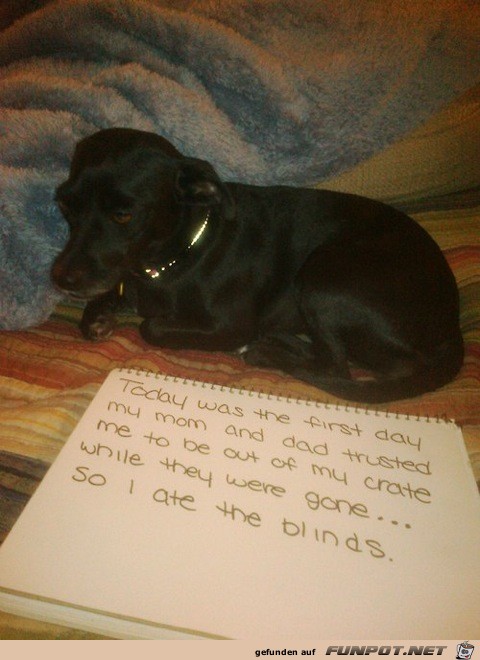 Today was the first day
my mom and dad trusted
me to be out of my crate
while they were gone...
So I ate the blinds.
gefunden auf FUNPOT.NET